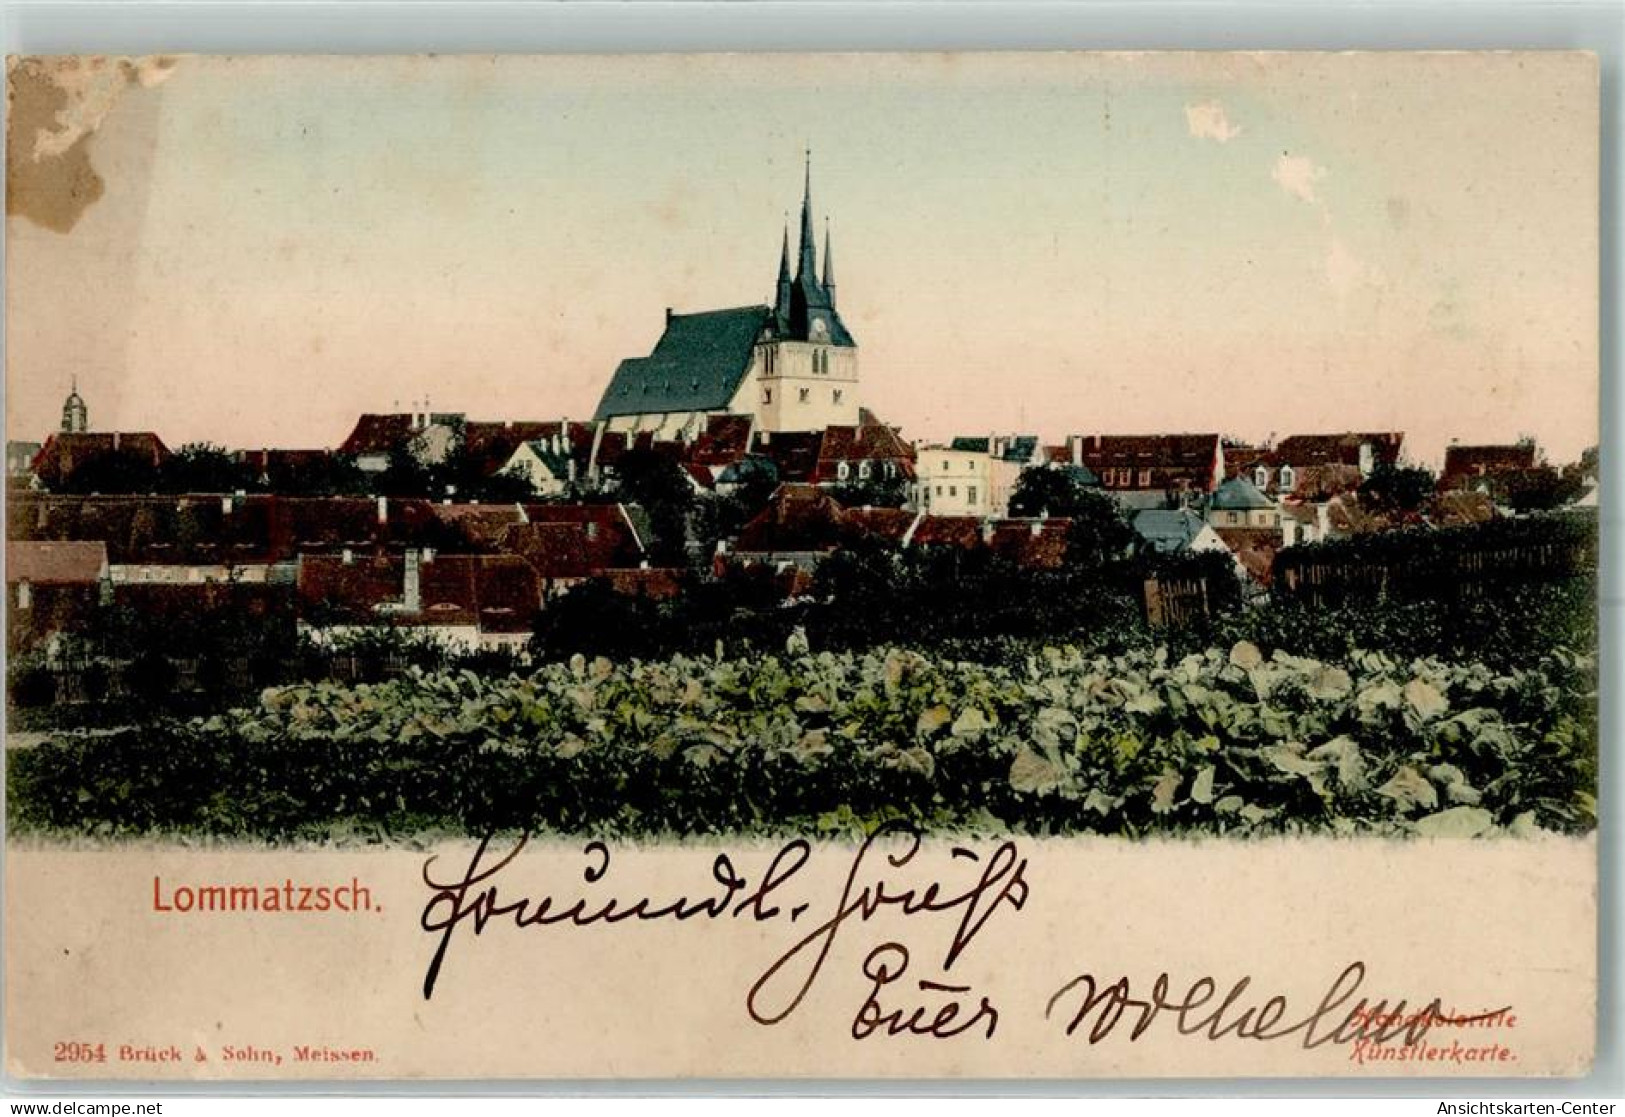 Lommatzsch.
Freundl. Gruß
Euer Wilhelm
2954 Brück & Sohn, Meissen.
Handkolorirte
Künstlerkarte.
www.delcampe.net Ansichtskarten-Center